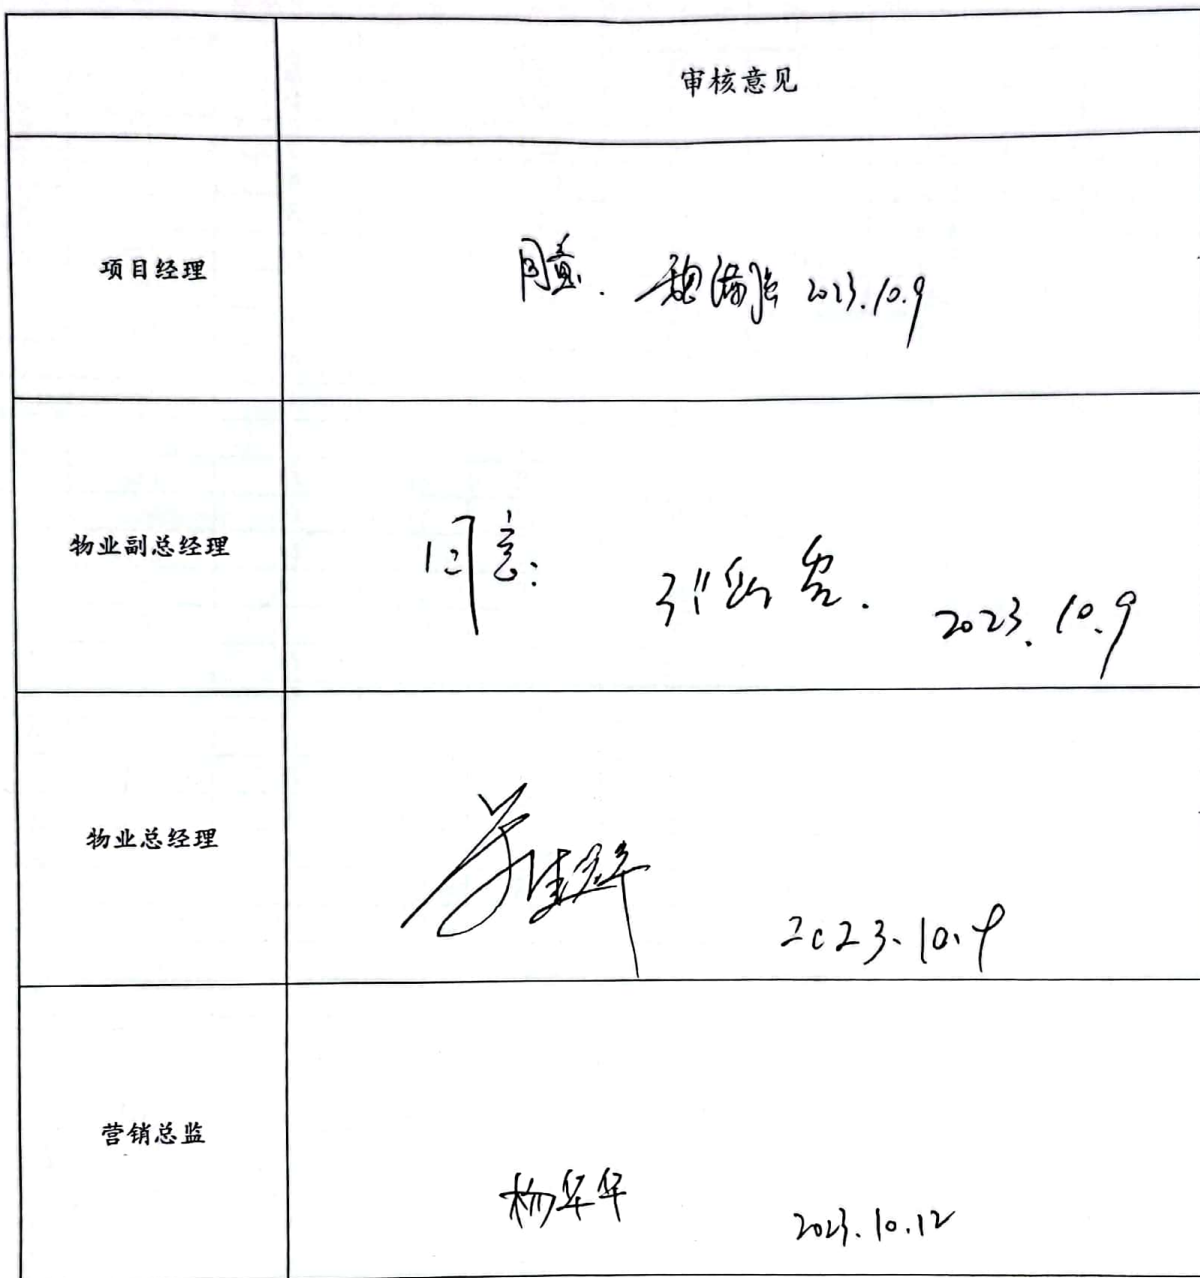 审核意见
项目经理
同意. 魏满强 2023.10.9
物业副总经理
同意. 2023.10.9
物业总经理
2023.10.9
营销总监
杨华华 2023.10.12